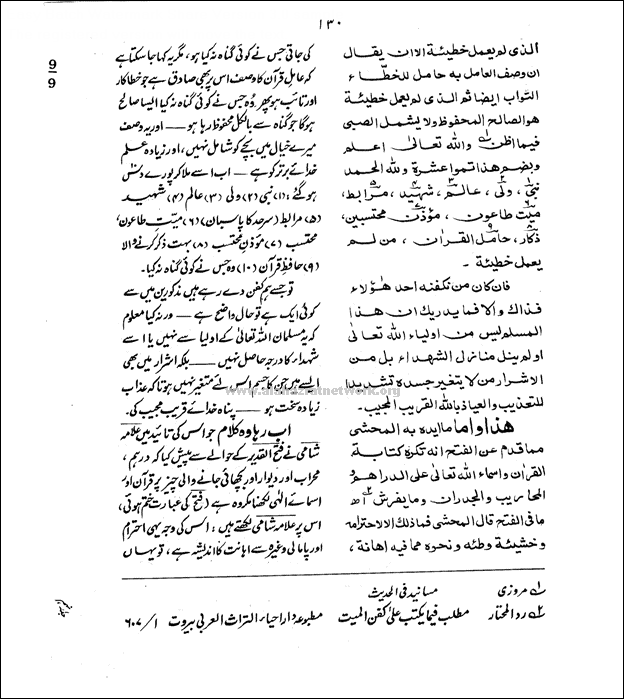 ۱۳۰
9
9
الذی لم یعمل خطیئة الا ان یقال
ان وصف العامل به حامل للخطّاء
التواب ایضا ثم الذی لم یعمل خطیئة
هو الصالح المحفوظ ولا یشمل الصبی
فیما اظن واللّٰه تعالٰی اعلم
ویضم هذا تموا عشرة وللّٰه الحمد
نبیؐ ، ولیؒ ، عالمؒ ، شہیدؒ ، مرابط ،
میّت طاعون ، مؤذن محتسبین ،
ذکار ، حامل القراٰن ، من لم
یعمل خطیئة ۔
فان کان من تکفنه احد هٰؤلاء
فذاك والا فما یدریك ان هذا
المسلم لیس من اولیاء اللّٰه تعالٰی
اولم ینل منازل الشهداء بل من
الاشرار من لا یتغیر جسده تشدیدا
للتعذیب والعیاذ باللّٰه القریب المجیب ۔
هذا واما ما ایده به المحشی
مما قدم عن الفتح انه تکره کتابة
القراٰن واسماء اللّٰه تعالٰی علی الدراهم و
المحاریب والجدران وما یفرش اھ
ما فی الفتح قال المحشی فما ذلك الا لاحترامه
وخشیئة وطئه ونحوه مما فیه اهانة ،
کی جاتی جس نے کوئی گناہ نہ کیا ہو ، مگر یہ کہا جا سکتا ہے
کہ عامل قرآن کا وصف اس پر بھی صادق ہے جو خطا کار
اور تائب ہو پھر وُہ جس نے کوئی گناہ نہ کیا ایسا صالح
ہوگا جو گناہ سے بالکل محفوظ رہا ہو —— اور یہ وصف
میرے خیال میں بچے کو شامل نہیں ، اور زیادہ علم
خدائے برتر کو ہے — اب اسے ملا کر پورے دسن
ہوگئے : (۱) نبی (۲) ولی (۳) عالم (۴) شہید
(۵) مرابط (سرحد کا پاسبان) (۶) میّتِ طاعون ،
محتسب (۷) مؤذن محتسب (۸) بہت ذکر کرنے والا
(۹) حافظِ قرآن (۱۰) وہ جس نے کوئی گناہ نہ کیا۔
تو جسے ہم کفن دے رہے ہیں مذکورین میں سے
کوئی ایک ہے تو حال واضح ہے — ورنہ کیا معلوم
کہ یہ مسلمان اللہ تعالٰی کے اولیا سے نہیں یا اسے
شہداء کا درجہ حاصل نہیں —— بلکہ اشرار میں بھی
ایسے ہیں جن کا جسم اس لئے متغیر نہیں ہوتا کہ عذاب
زیادہ سخت ہو — پناہ خدائے قریب مجیب کی۔
اب رہا وہ کلام جو اس کی تائید میں علامہ
شامی نے فتح القدیر کے حوالے سے پیش کیا کہ درہم ،
محراب اور دیوار اور بچھائی جانے والی چیز پر قرآن اور
اسمائے الٰہی لکھنا مکروہ ہے (فتح کی عبارت ختم ہوئی)،
اس پر علامہ شامی لکھتے ہیں : اس کی وجہ یہی احترام
اور پامالی وغیرہ سے اہانت کا اندیشہ ہے ، تو یہاں
؎۱ مروزی مسانید فی الحدیث
؎۲ ردالمحتار مطلب فیما یکتب علٰی کفن المیت مطبوعہ دار احیاء التراث العربی بیروت ۱/ ۶۰۷